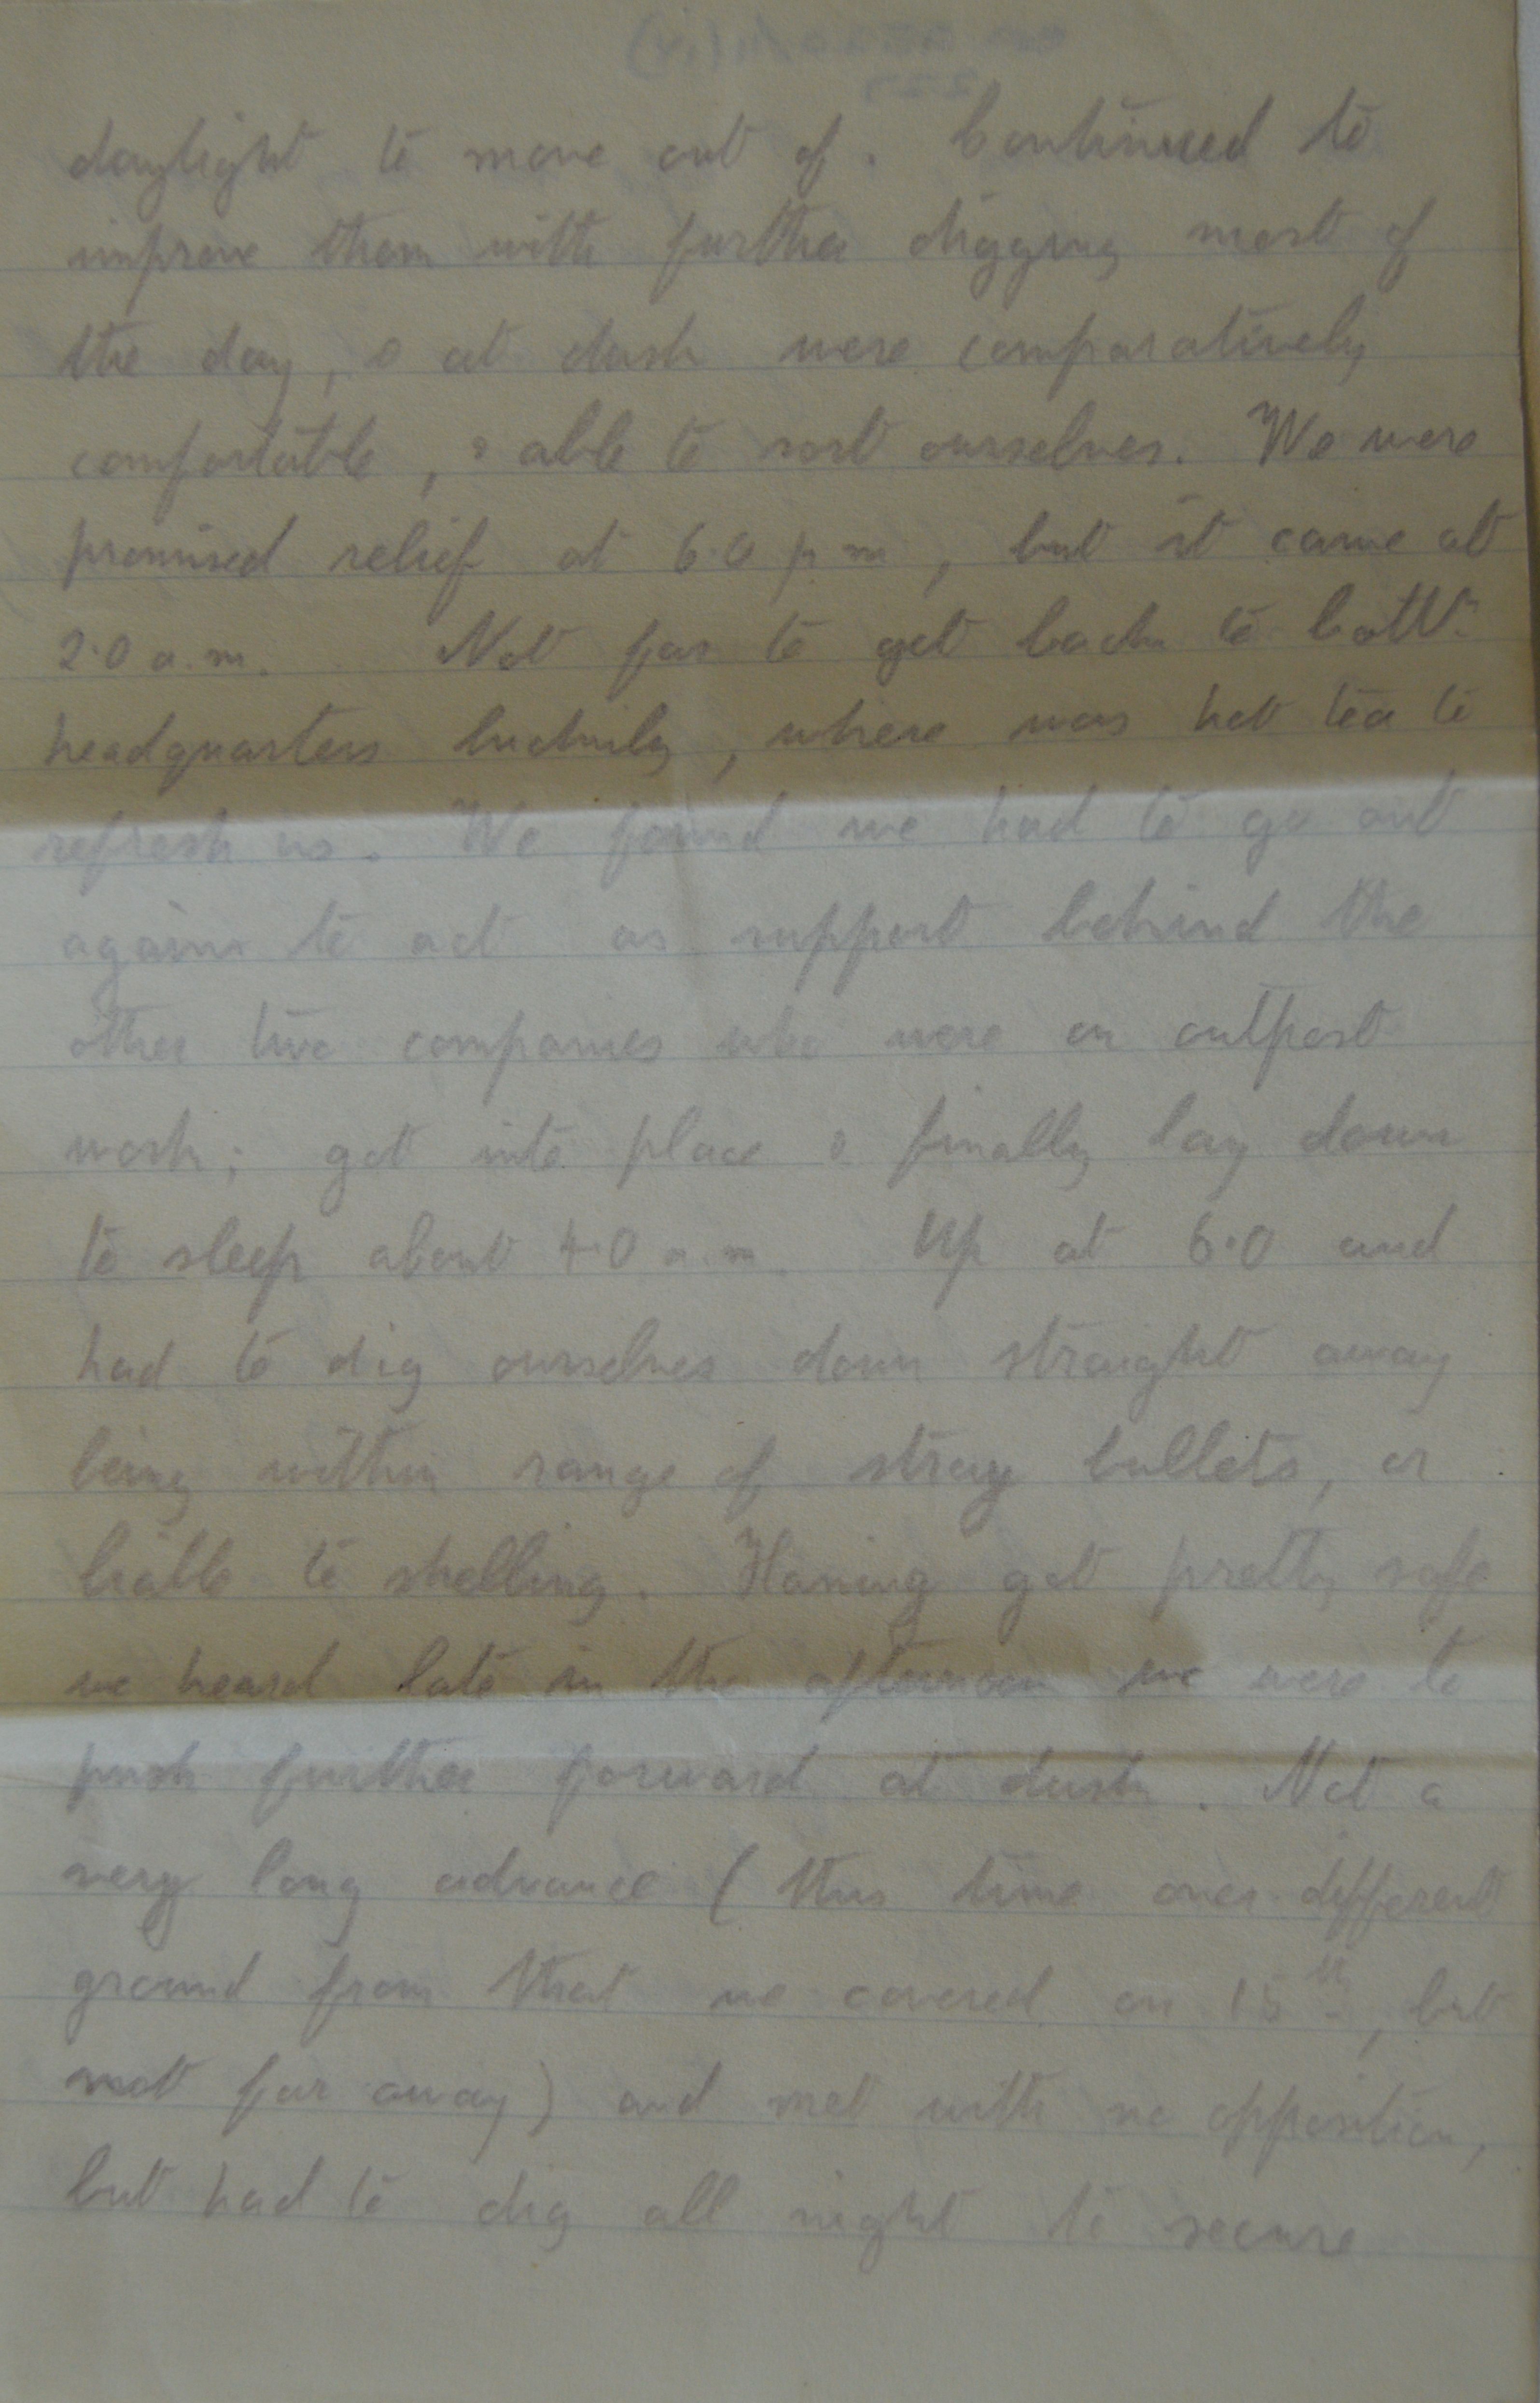 daylight to move out of. Continued to
improve them with further digging most of
the day, & at dusk were comparatively
comfortable, & able to rest ourselves. We were
promised relief at 6.0 p m, but it came at
2.0 a.m. Not far to get back to battn
headquarters luckily, where was hot tea to
refresh us. We found we had to go out
again to act as support behind the
other two companies who were on outpost
work; got into place & finally lay down
to sleep about 4.0 a.m. Up at 6.0 and
had to dig ourselves down straight away
being within range of stray bullets, or
liable to shelling. Having got pretty safe
we heard late in the afternoon we were to
push further forward at dusk. Not a
very long advance (this time over different
ground from that we covered on 15th, but
not far away) and met with no opposition,
but had to dig all night to secure